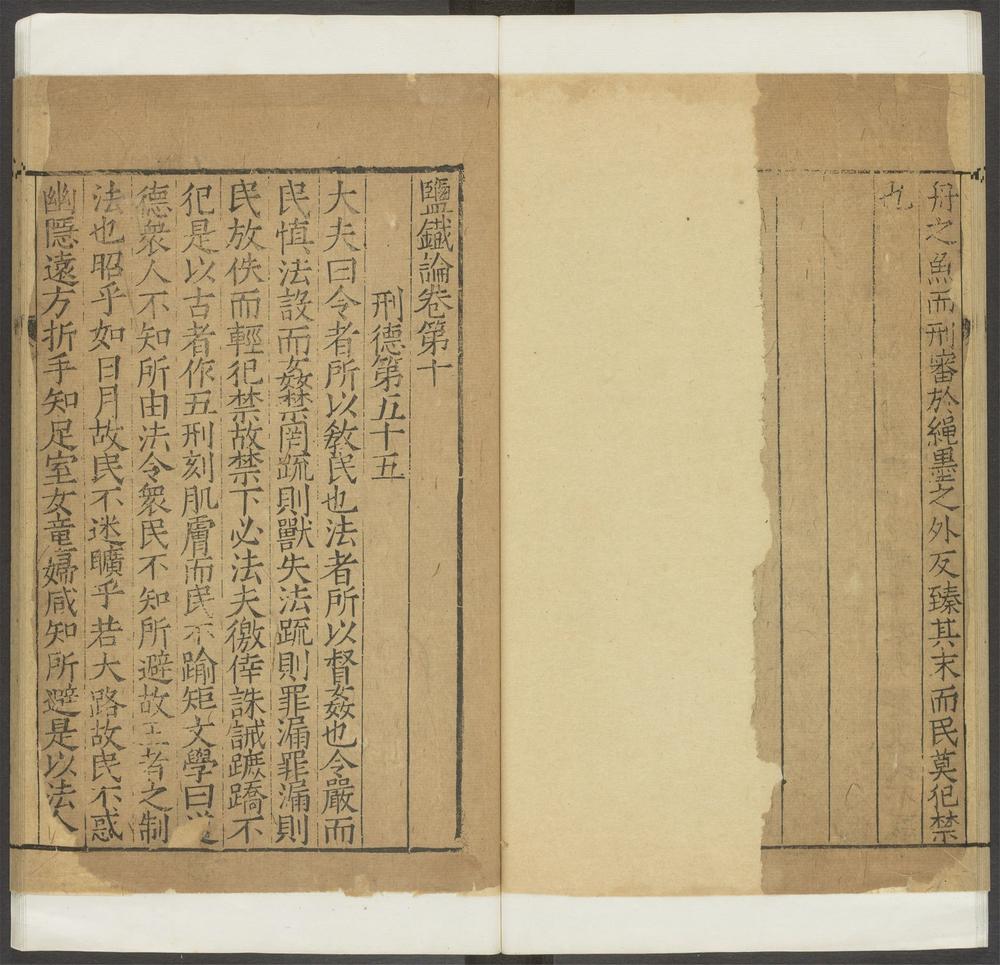 舟之魚而刑審於繩墨之外反臻其末而民莫犯禁
也
鹽鐵論卷第十
刑德第五十五
大夫曰令者所以敎民也法者所以督姦也令嚴而
民慎法設而姦禁罔疏則獸失法疏則罪漏罪漏則
民放佚而輕犯禁故禁不必法夫徼倖誅誡蹠蹻不
犯是以古者作五刑刻肌膚而民不踰矩文學曰道
德衆人不知所由法令衆民不知所避故王者之制
法也昭乎如日月故民不迷曠乎若大路故民不惑
幽隱遠方折乎知足室女童婦咸知所避是以法令